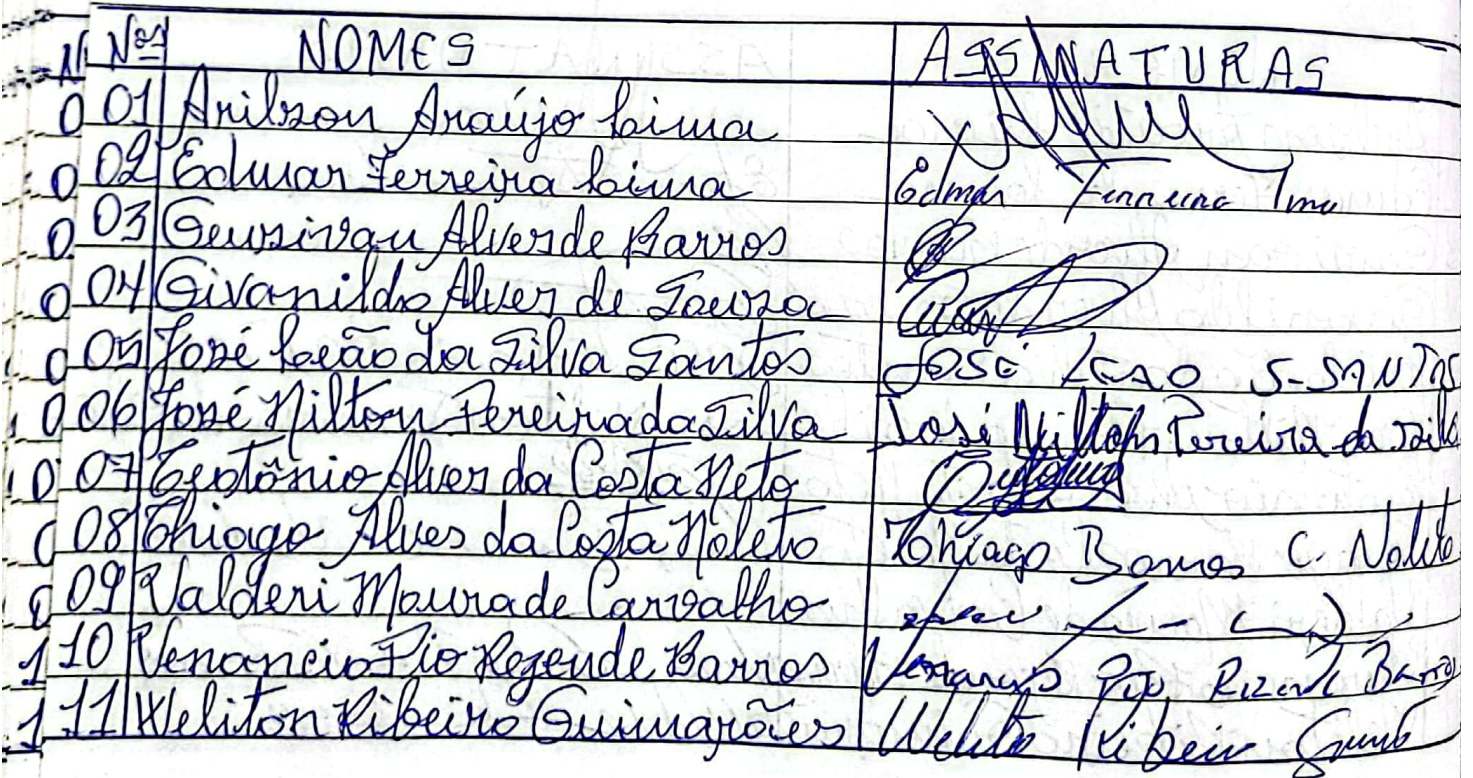 Nos NOMES ASSINATURAS
01 Arilson Araújo Lima
02 Edmar Ferreira Lima Edmar Ferreira
03 Geusivan Alves de Barros
04 Givanildo Alves de Souza
05 José Leão da Silva Santos JOSÉ LEAO S-SANTOS
06 José Nilton Pereira da Silva José Nilton Pereira da Silva
07 Teotônio Alves da Costa Neto
08 Thiago Alves da Costa Noleto Thiago Barros C. Noleto
09 Valderi Moura de Carvalho
10 Venancio Pio Rezende Barros Venancio Pio Rezende Barros
11 Weliton Ribeiro Guimarães Welito Ribeiro